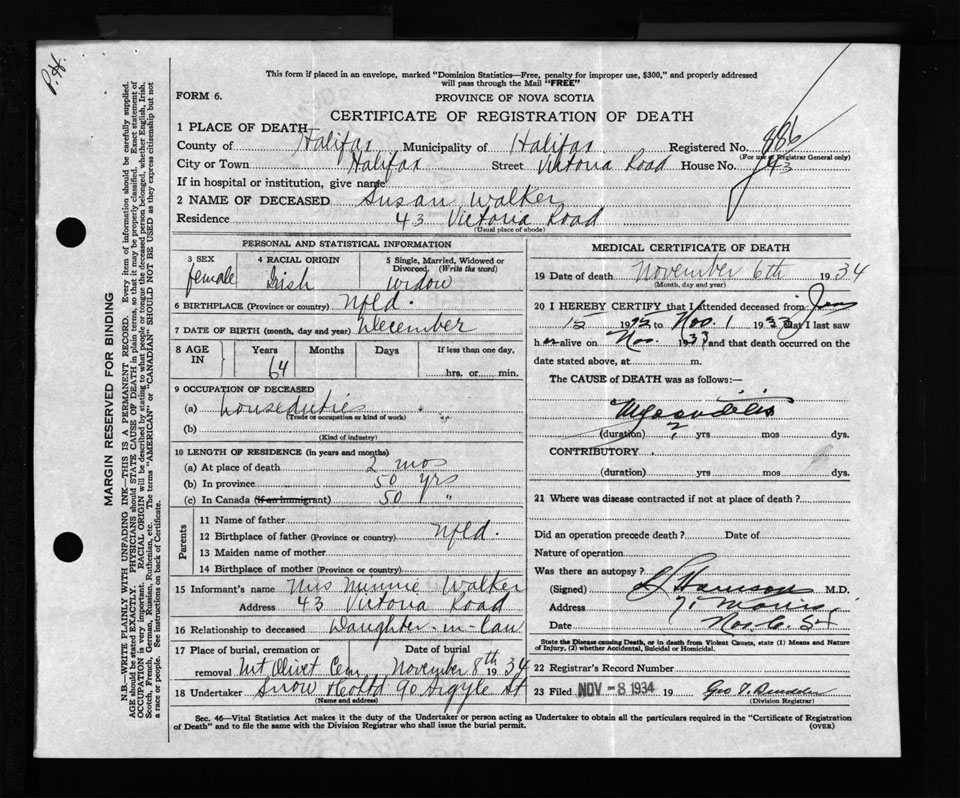 P.H.
This form if placed in an envelope, marked "Dominion Statistics—Free, penalty for improper use, $300," and properly addressed
will pass through the Mail "FREE"
FORM 6.
PROVINCE OF NOVA SCOTIA
CERTIFICATE OF REGISTRATION OF DEATH
1 PLACE OF DEATH
County of Halifax Municipality of Halifax Registered No. 886
(For use of Registrar General only)
City or Town Halifax Street Victoria Road House No. 43
If in hospital or institution, give name
2 NAME OF DECEASED Susan Walker
Residence 43 Victoria Road
(Usual place of abode)
PERSONAL AND STATISTICAL INFORMATION
3 SEX female
4 RACIAL ORIGIN Irish
5 Single, Married, Widowed or Divorced. (Write the word) widow
6 BIRTHPLACE (Province or country) Nfld.
7 DATE OF BIRTH (month, day and year) December
8 AGE IN
Years Months Days If less than one day,
64 hrs. or min.
9 OCCUPATION OF DECEASED
(a) house duties
(Trade or occupation or kind of work)
(b)
(Kind of industry)
10 LENGTH OF RESIDENCE (in years and months)
(a) At place of death 2 mos
(b) In province 50 yrs
(c) In Canada (if an immigrant) 50 "
Parents
11 Name of father
12 Birthplace of father (Province or country) Nfld.
13 Maiden name of mother
14 Birthplace of mother (Province or country)
15 Informant's name Mrs Minnie Walker
Address 43 Victoria Road
16 Relationship to deceased Daughter-in-law
17 Place of burial, cremation or Date of burial
removal Mt Olivet Cem November 8th 1934
18 Undertaker Snow & Co Ltd 90 Argyle St
(Name and address)
MEDICAL CERTIFICATE OF DEATH
19 Date of death November 6th 1934
(Month, day and year)
20 I HEREBY CERTIFY that I attended deceased from Jan
15 19 to Nov. 1 193 that I last saw
h er alive on Nov. 1933 and that death occurred on the
date stated above, at m.
The CAUSE of DEATH was as follows:—
Myocarditis
(duration) ? yrs mos dys.
CONTRIBUTORY
(duration) yrs mos dys.
21 Where was disease contracted if not at place of death?
Did an operation precede death? Date of
Nature of operation
Was there an autopsy?
(Signed) M.D.
Address 71 Morris
Date Nov. 6. 34
State the Disease causing Death, or in death from Violent Causes, state (1) Means and Nature
of Injury, (2) whether Accidental, Suicidal or Homicidal.
22 Registrar's Record Number
23 Filed NOV -8 1934 19
(Division Registrar)
Sec. 46—Vital Statistics Act makes it the duty of the Undertaker or person acting as Undertaker to obtain all the particulars required in the "Certificate of Registration
of Death" and to file the same with the Division Registrar who shall issue the burial permit. (OVER)
MARGIN RESERVED FOR BINDING
N.B.—WRITE PLAINLY WITH UNFADING INK—THIS IS A PERMANENT RECORD. Every item of information should be carefully supplied.
AGE should be stated EXACTLY. PHYSICIANS should STATE CAUSE OF DEATH in plain terms, so that it may be properly classified. Exact statement of
OCCUPATION is very important. RACIAL ORIGIN will be described by stating to what people or tongue the deceased person belonged, whether English, Irish,
Scotch, French, German, Russian, Ruthenian, etc. The terms "AMERICAN" or "CANADIAN" SHOULD NOT BE USED as they express citizenship but not
a race or people. See instructions on back of Certificate.